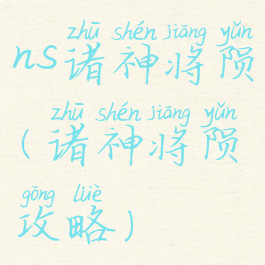 zhū shén jiāng yǔn
ns诸神将陨
zhū shén jiāng yǔn
(诸神将陨
gōng lüè
攻略)